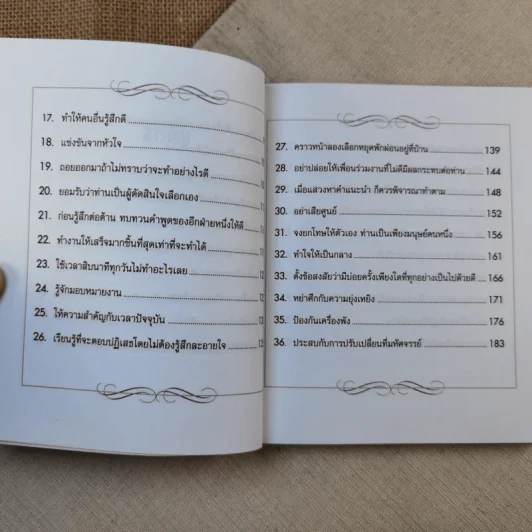 17. ทำให้คนอื่นรู้สึกดี
18. แข่งขันจากหัวใจ
19. ถอยออกมาถ้าไม่ทราบว่าจะทำอย่างไรดี
20. ยอมรับว่าท่านเป็นผู้ตัดสินใจเลือกเอง
21. ก่อนรู้สึกต่อต้าน ทบทวนคำพูดของอีกฝ่ายหนึ่งให้ดี
22. ทำงานให้เสร็จมากขึ้นที่สุดเท่าที่จะทำได้
23. ใช้เวลาสิบนาทีทุกวันไม่ทำอะไรเลย
24. รู้จักมอบหมายงาน
25. ให้ความสำคัญกับเวลาปัจจุบัน
26. เรียนรู้ที่จะตอบปฏิเสธโดยไม่ต้องรู้สึกละอายใจ
27. คราวหน้าลองเลือกหยุดพักผ่อนอยู่ที่บ้าน 139
28. อย่าปล่อยให้เพื่อนร่วมงานที่ไม่ดีมีผลกระทบต่อท่าน 144
29. เมื่อแสวงหาคำแนะนำ ก็ควรพิจารณาทำตาม 148
30. อย่าเสียศูนย์ 152
31. จงยกโทษให้ตัวเอง ท่านเป็นเพียงมนุษย์คนหนึ่ง 156
32. ทำใจให้เป็นกลาง 161
33. ตั้งข้อสงสัยว่ามีบ่อยครั้งเพียงใดที่ทุกอย่างเป็นไปด้วยดี 166
34. หย่าศึกกับความยุ่งเหยิง 171
35. ป้องกันเครื่องพัง 176
36. ประสบกับการปรับเปลี่ยนที่มหัศจรรย์ 183